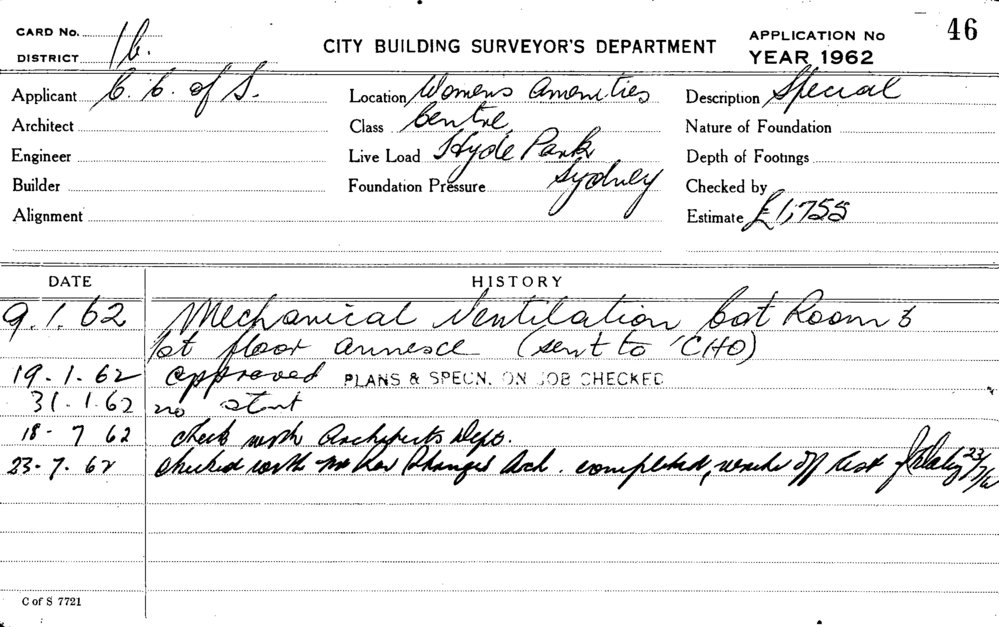 CARD No.
DISTRICT 16.
CITY BUILDING SURVEYOR'S DEPARTMENT
APPLICATION No 46
YEAR 1962
Applicant C. C. of S.
Architect
Engineer
Builder
Alignment
Location Womens Amenities
Class Centre,
Live Load Hyde Park
Foundation Pressure Sydney
Description Special
Nature of Foundation
Depth of Footings
Checked by
Estimate £1,755
DATE HISTORY
9.1.62 Mechanical Ventilation Cot Room 3
1st floor annexe (sent to CHO)
19.1.62 approved PLANS & SPECN. ON JOB CHECKED
31.1.62 no start
18-7 62 check with Architects Dept.
23.7.62 checked with Arch. completed, off list 23/7/62
C of S 7721